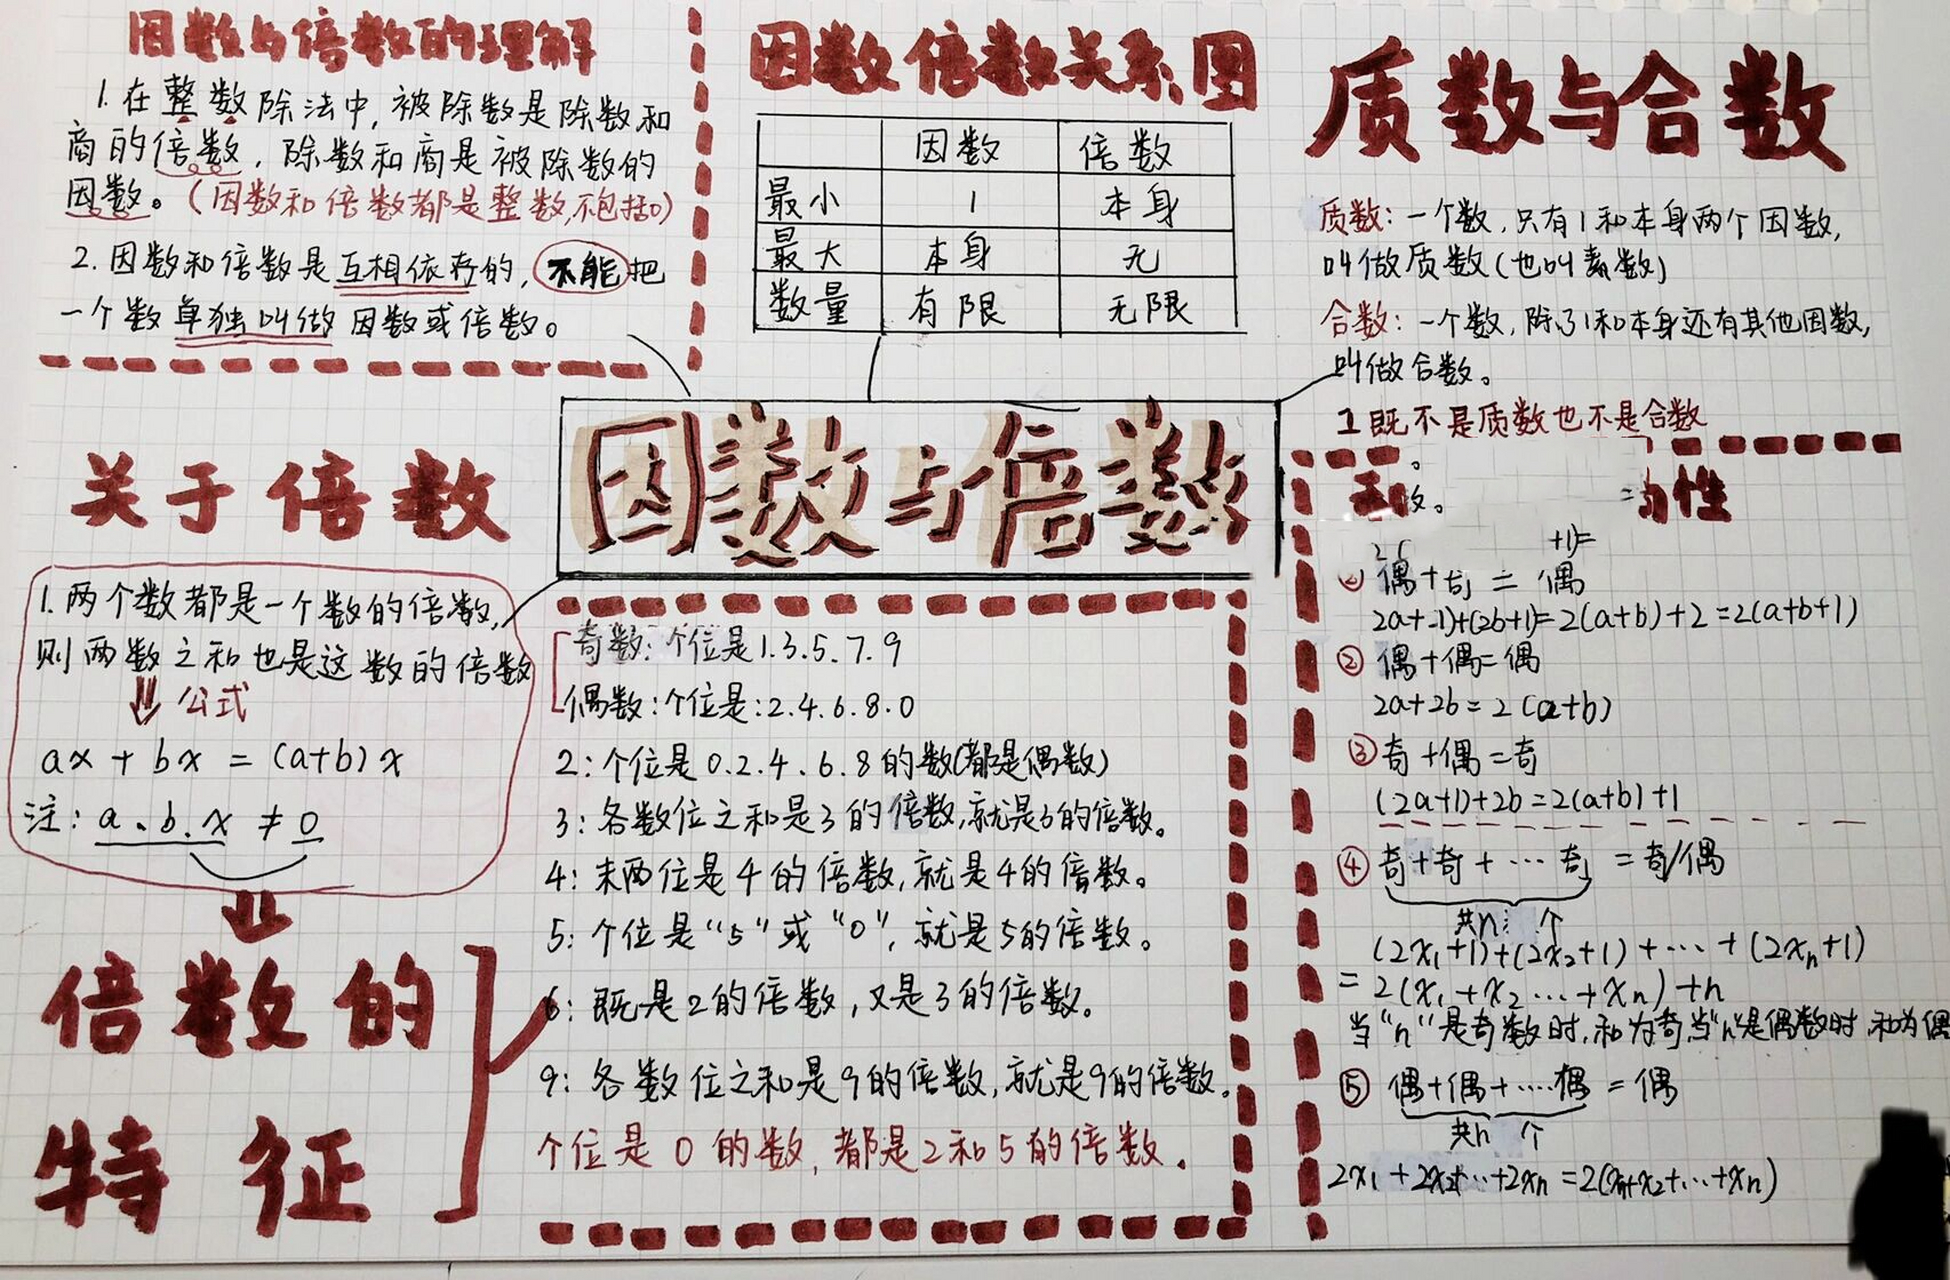 因数与倍数的理解
1.在整数除法中,被除数是除数和
商的倍数,除数和商是被除数的
因数。(因数和倍数都是整数,不包括0)
2.因数和倍数是互相依存的,不能把
一个数单独叫做因数或倍数。
因数倍数关系图
因数 倍数
最小 1 本身
最大 本身 无
数量 有限 无限
质数与合数
质数:一个数,只有1和本身两个因数,
叫做质数(也叫素数)
合数:一个数,除了1和本身还有其他因数,
叫做合数。
1既不是质数也不是合数
因数与倍数
关于倍数
1.两个数都是一个数的倍数,
则两数之和也是这数的倍数
公式
ax+bx=(a+b)x
注:a、b、x≠0
倍数的
特征
奇数:个位是1.3.5.7.9
偶数:个位是:2.4.6.8.0
2:个位是0.2.4.6.8的数(都是偶数)
3:各数位之和是3的倍数,就是3的倍数。
4:末两位是4的倍数,就是4的倍数。
5:个位是“5”或“0”,就是5的倍数。
6:既是2的倍数,又是3的倍数。
9:各数位之和是9的倍数,就是9的倍数。
个位是0的数,都是2和5的倍数。
性
+1)=
偶+奇=偶
2a+1)+(2b+1)=2(a+b)+2=2(a+b+1)
②偶+偶=偶
2a+2b=2(a+b)
③奇+偶=奇
(2a+1)+2b=2(a+b)+1
④奇+奇+…奇=奇/偶
共n个
(2x₁+1)+(2x₂+1)+…+(2xₙ+1)
=2(x₁+x₂…+xₙ)+n
当“n”是奇数时,和为奇,当“n”是偶数时,和为偶
⑤偶+偶+…偶=偶
共n个
2x₁+2x₂+…+2xₙ=2(x₁+x₂+…+xₙ)